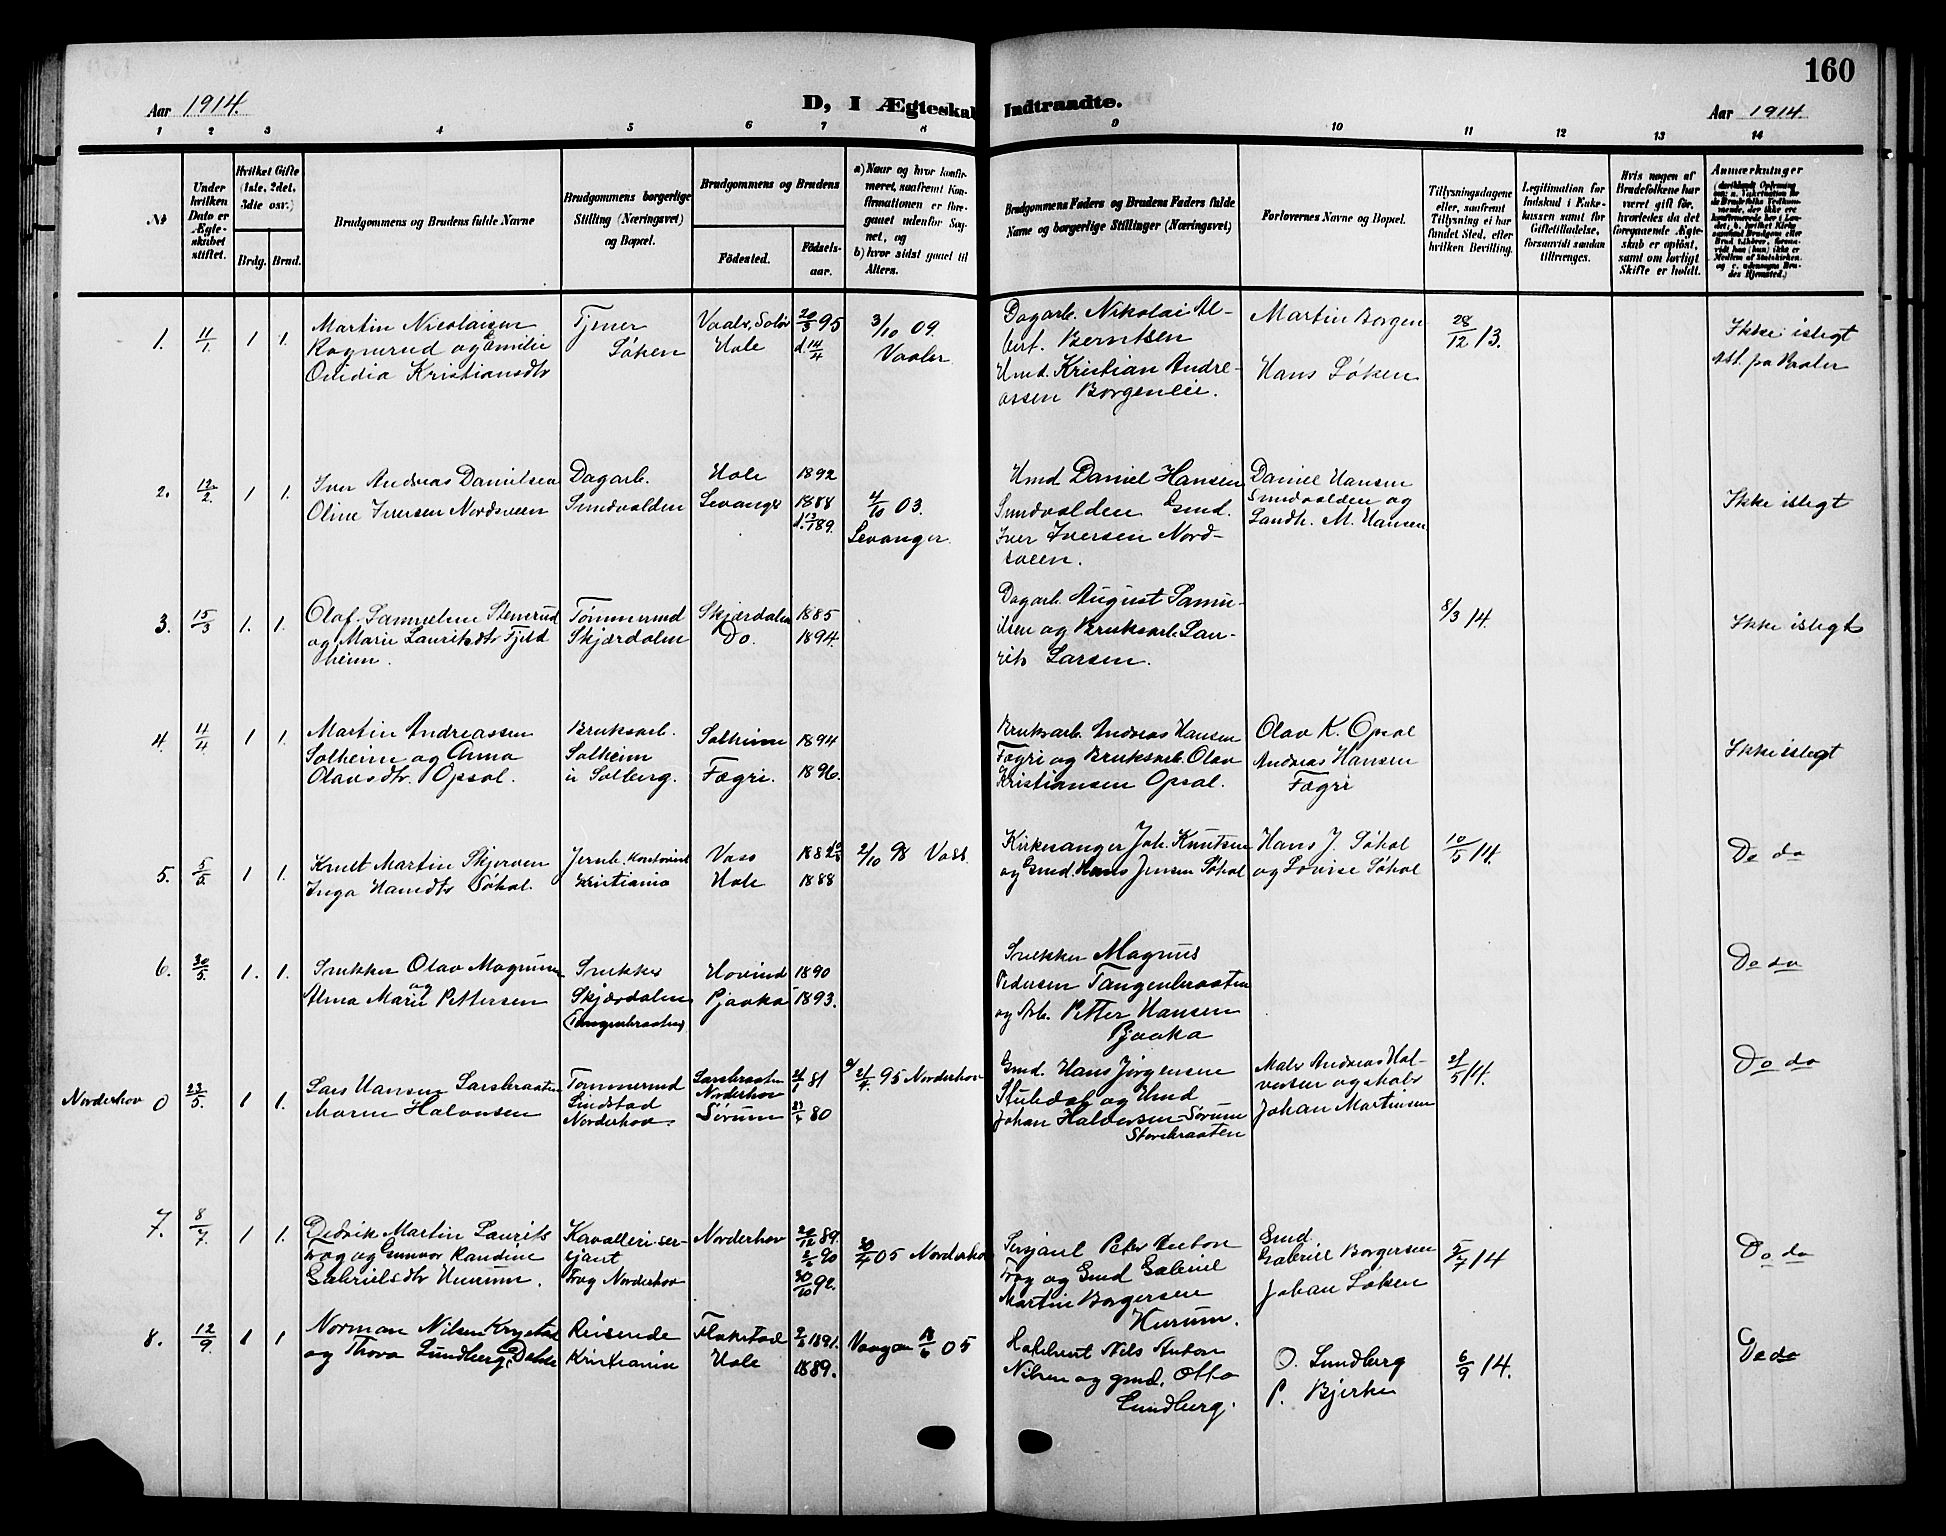 160
Aar 1914.
D, I Ægteskab Indtraadte.
Aar 1914.
1 2 3 4 5 6 7 8 9 10 11 12 13 14
No
Under hvilken Dato er Ægteskabet stiftet.
Hvilket Gifte (1ste, 2det, 3die osv.)
Brdg. Brud.
Brudgommens og Brudens fulde Navne
Brudgommens borgerlige Stilling (Næringsvei) og Bopæl.
Brudgommens og Brudens
Fødested.
Fødselsaar.
a) Naar og hvor konfirmeret, saafremt Konfirmationen er foregaaet udenfor Sognet, og
b) hvor sidst gaaet til Alters.
Brudgommens Faders og Brudens Faders fulde Navne og borgerlige Stillinger (Næringsvei)
Forlovernes Navne og Bopæl.
Tillysningsdagene eller, saafremt Tillysning ei har fundet Sted, efter hvilken Bevilling.
Legitimation for Indskud i Enkekassen samt for Giftetilladelse, forsaavidt saadan tiltrænges.
Hvis nogen af Brudefolkene har været gift før, hvorledes da det foregaaende Ægteskab er opløst, samt om lovligt Skifte er holdt.
Anmærkninger
1. 11/1. 1 1.
Martin Nicolaisen
Rognerud og Emilie
Ovidia Kristiansdtr
Tjener
Løken
Vaaler, Solør
Hole
20/3 95
d. 14/4
3/10 09.
Vaaler
Dagarb. Nikolai Al-
bert. Berntsen
Hmd. Kristian Andre-
assen Borgenleie.
Martin Borgen
Hans Løken
28/12 13.
Ikke islegt
Att. fra Vaaler
2. 12/2. 1 1.
Iver Andreas Danielsen
Oline Iversen Nordsveen
Dagarb.
Sundvolden
Hole
Levanger
1892
1888
4/10 03.
Levanger
Hmd Daniel Hansen
Sundvolden Gmd.
Iver Iversen Nord-
sveen.
Daniel Hansen
Sundvolden og
Landh. M. Hansen
Ikke islegt
3. 15/3 1. 1.
Olaf Samuelsen Stenerud
og Marie Lauritsdtr Fjeld
heim.
Tømmermd
Skjærdalen
Skjærdalen
Do.
1885
1894.
Dagarb. August Samu-
elsen og Bruksarb. Lau-
rits Larsen.
8/3 14.
Ikke islegt
4. 11/4 1 1.
Martin Andreassen
Solheim og Anna
Olausdtr. Opsal.
Bruksarb.
Solheim
u Solberg.
Solheim
Fægri.
1894
1896.
Bruksarb. Andreas Hansen
Fægri og Bruksarb. Olav
Kristiansen Opsal.
Olav K. Opsal
Andreas Hansen
Fægri
Ikke islegt
5. 5/5. 1 1.
Knut Martin Skjerven
Inga Hansdtr Søhol.
Jernb. kontorist
Kristiania
Voss
Hole
1882
1888
2/10 98 Voss.
Kirkesanger Joh. Knutsen
og Gmd. Hans Jensen Søhol
Hans J. Søhol
og Lovise Søhol
10/5 14.
Do do
6. 30/5. 1. 1.
Snekker Olav Magnusen
og
Alma Marie Pettersen
Snekker
Skjærdalen
(Tangenbraaten)
Hovind
Pjaaka
1890
1893.
Snekker Magnus
Pedersen Tangenbraaten
og Arb. Petter Hansen
Pjaaka
Do do
Norderhov 0 23/5. 1 1.
Lars Hansen Larsbraaten
Maren Halvorsen
Tømmermd
Lindstad
Norderhov.
Larsbraaten
Norderhov
Sørum
21/1 81
80
95 Norderhov
Gmd. Hans Jørgensen
Stubdal og Hmd
Johan Halvorsen-Sørum
Storebraaten
Maler Andreas Hal-
vorsen og Maler
Johan Martinsen
21/5 14.
Do do
7. 8/7. 1 1.
Dedrik Martin Laurits
Frøg og Gunvor Randine
Gabrielsdtr Hurum.
Kavalleri-ser-
sjant
Frøg Norderhov
Norderhov
89.
90
30/10 92.
05 Norderhov
Sersjant Peter Anton
Frøg og Gmd Gabriel
Martin Borgersen
Hurum.
Gmd.
Gabriel Borgersen
Johan Løken
5/7 14
Do do
8. 12/9. 1 1
Norman Nilsen Krystad
og Thora Lundberg, Dahle
Reisende
Kristiania
Flakstad
Hole
1891.
1889.
Vaagan 18/6 05
Nils Anton
Nilsen og gmd. Otto
Lundberg.
O. Lundberg
P. Bjerke
6/9 14.
Do do